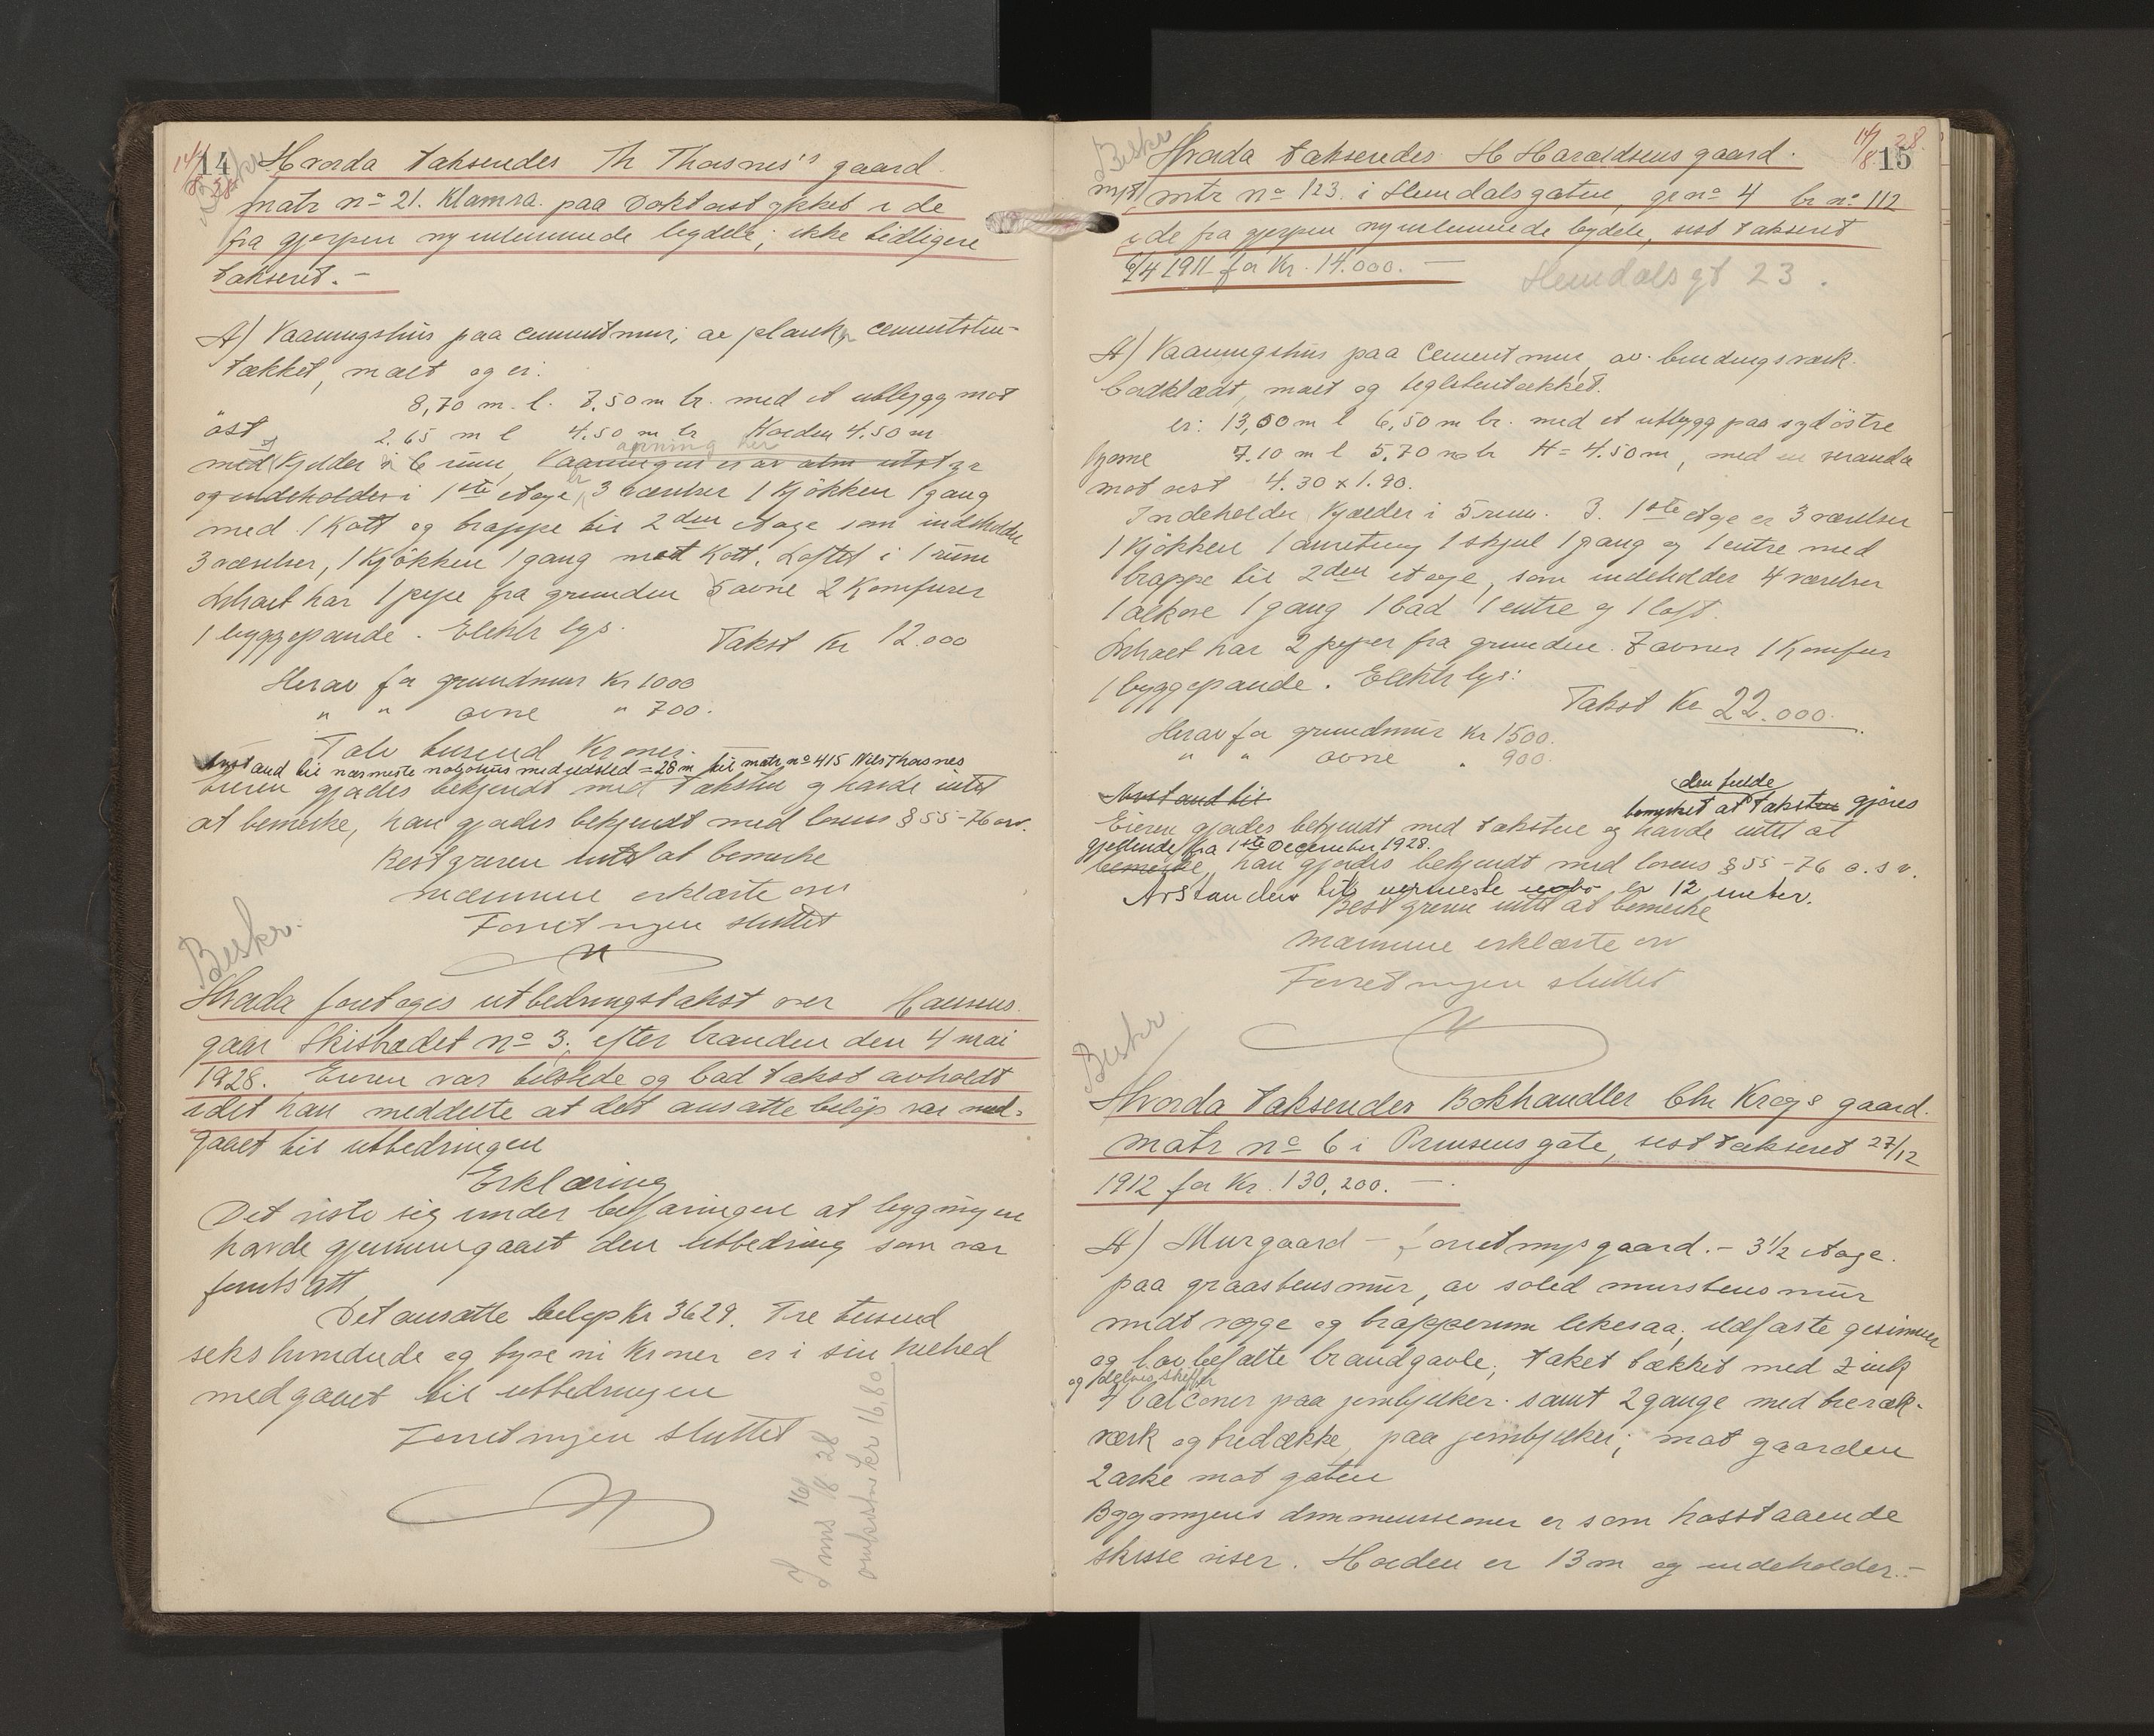 14
14/8 28
Beskr
Hvorda takseredes Th Thorsnes's gaard
matr nº 21. Klamra. paa Doktorstykket i de
fra gjerpen nyinlemmede bydele; ikke tidligere
takseret. –
A) Vaaningshus paa cementmur; av plank, cementsten-
tækket, malt og er:
8,70 m. l. 7.50 m br. med et utbygg mot
öst 2.65 m l 4.50 m br Höiden 4.50 m
med Kjelder i 6 rum, Vaaningen er av alm utstyr
og indeholder i 1ste etage, 3 værelser 1 Kjökken 1 gang
med 1 Kott og trappe til 2den etage som indeholder
3 værelser, 1 Kjökken 1 gang mat Kott. Loftet i 1 rum
Huset har 1 pipe fra grunden 5 ovne 2 Komfurer
1 bryggepande. Elektr lys. Takst Kr 12.000
Herav for grundmur Kr 1000
" " ovne " 700.
Tolv tusend Kroner. –
Avstand til nærmeste nabohus med ildsted = 28 m til matr nº 415 Nils Thorsnes
Eieren gjordes bekjendt med taksten og havde intet
at bemerke, han gjordes bekjendt med lovens § 55-76 osv.
Bestyreren intet at bemerke
Mændene erklærte osv
Forretningen sluttet
Beskr.
Hvorda foretages utbedringstakst over Hansens
gaar Skistrædet nº 3; efter branden den 4 mai
1928. Eieren var tilstede og bad takst avholdt
idet han meddelte at det ansatte belöp var med-
gaaet til utbedringen
Erklæring
Det viste sig under befaringen at bygningen
havde gjennemgaaet den utbedring som var
forutsatt
Det ansatte belöp Kr 3629. Tre tusend
seks hundrede og tyve ni Kroner er i sin helhed
medgaaet til utbedringen
Forretningen sluttet
16/8 28
omkostn kr 16,80
15
14/8 28.
Beskr
Hvorda takseredes H Haraldsens gaard.
mtr nº 123. i Hemdalsgaten, gr nº 4 br nº 112
i de fra gjerpen nyinlemmede bydele, sist takseret
6/4 1911 for Kr. 14.000. –
Hemdalsgt 23.
A) Vaaningshus paa Cement mur, av. bindingsværk.
bordklædt, malt og teglstentækket.
er: 13,00 m l 6,50 m br. med et utbygg paa sydöstre
hjørne 7.10 m l 5.70 m br H = 4.50 m, med en veranda
mot vest 4.30 x 1.90.
Indeholder Kjælder i 5 rum. I. 1ste etage er 3 værelser
1 Kjökken 1 anretning 1 skjul 1 gang og 1 entre med
trappe til 2den etage, som indeholder 4 værelser
1 alkove 1 gang 1 bad 1 entre og 1 loft.
Huset har 2 piper fra grunden. 7 ovner 1 Komfur
1 bryggepande. Elektr lys:
Takst Kr 22.000.
Herav for grundmur Kr 1500.
" " ovne " 900.
Avstand til
den fulde
bemerket at taksten gjöres
Eieren gjordes bekjendt med taksten og havde intet at
gjeldende fra 1ste December 1928.
bemerke, han gjordes bekjendt med lovens § 55 - 76 o. s v.
Avstanden til nermeste nabo er 12 meter.
Bestyreren intet at bemerke
Mændene erklærte osv
Forretningen sluttet
Beskr
Hvorda takseredes Bokhandler Chr Krogs gaard.
matr nº 6 i Prinsensgate, sist takseret 27/12
1912 for Kr. 130,200. –
A) Murgaard – forretningsgaard. – 3 1/2 etage.
paa graastensmur, av soled murstensmur
midt vægge og trapperum likesaa; ildfaste gesimser
og lovbefalte brandgavle; taket tækket med zink
og delvis skiffer
4 balconer paa jernbjelker. samt 2 gange med træræk-
værk og trædække, paa jernbjelker; mot gaarden
2 arke mot gaten
Bygningens dimmensioner er som hosstaaende
skisse viser. Höiden er 13 m og indeholder. –